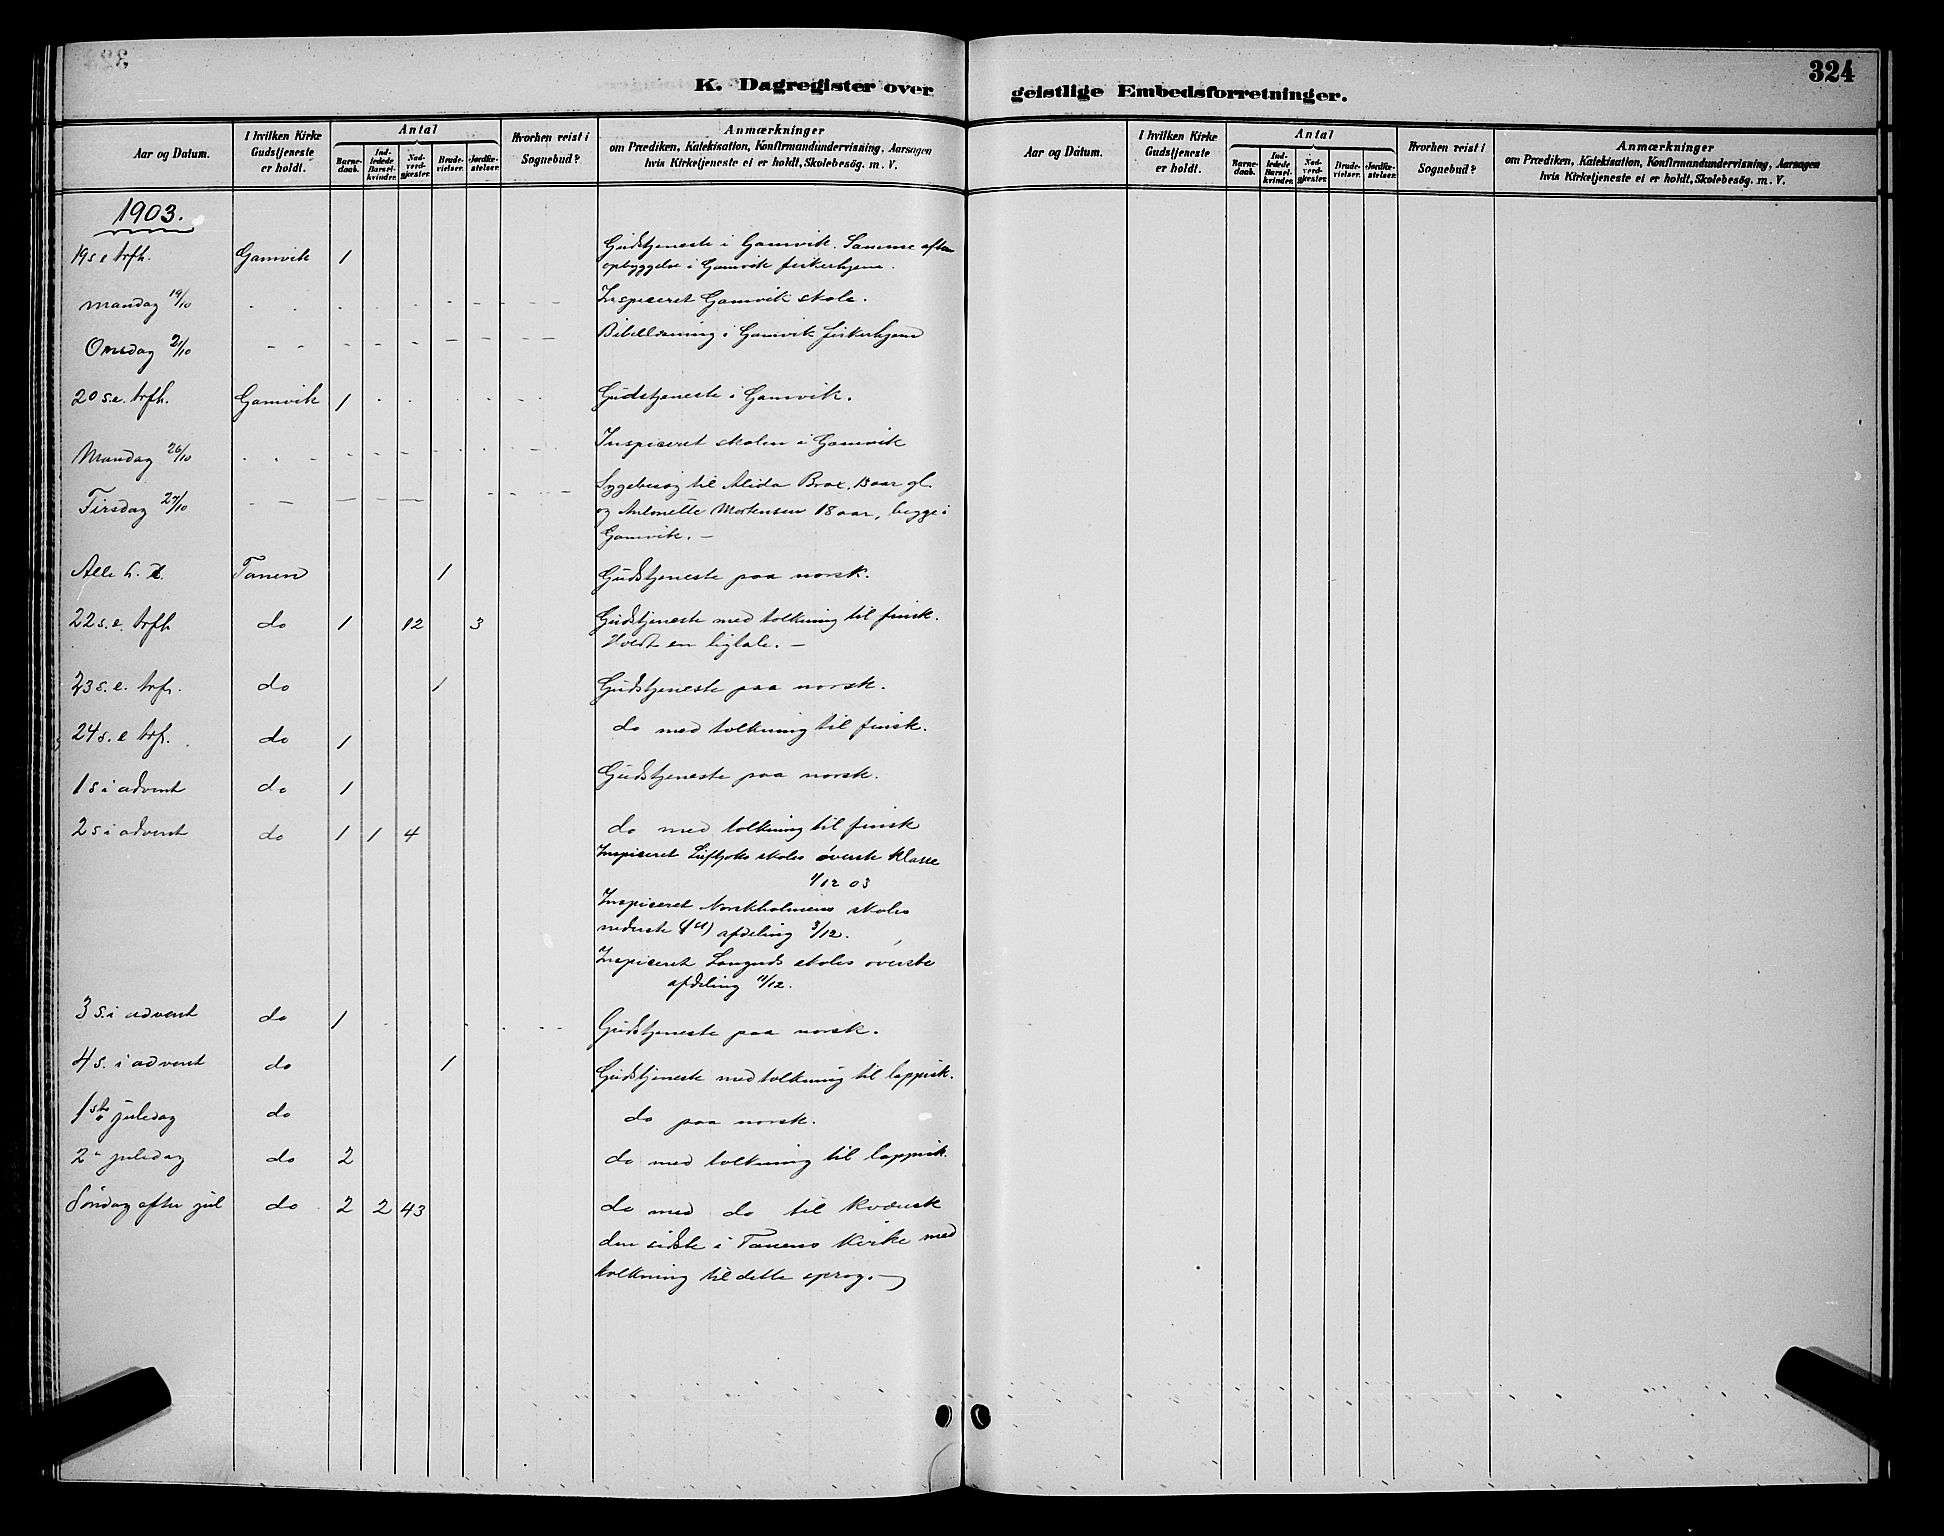 K. Dagregister over geistlige Embedsforretninger.
324
Aar og Datum. I hvilken Kirke Gudstjeneste er holdt. Antal Barnedaab. Indledede Barselkvinder. Nadverdgjester. Brudevielser. Jordfæstelser. Hvorhen reist i Sognebud? Anmærkninger om Prædiken, Katekisation, Konfirmandundervisning, Aarsagen hvis Kirketjeneste ei er holdt, Skolebesög. m. V.
Aar og Datum. I hvilken Kirke Gudstjeneste er holdt. Antal Barnedaab. Indledede Barselkvinder. Nadverdgjester. Brudevielser. Jordfæstelser. Hvorhen reist i Sognebud? Anmærkninger om Prædiken, Katekisation, Konfirmandundervisning, Aarsagen hvis Kirketjeneste ei er holdt, Skolebesög. m. V.
1903.
19 s e trfh. Gamvik 1 Gudstjeneste i Gamvik. Samme aften
opbyggelse i Gamvik fiskerhjem.
mandag 19/10 Inspiceret Gamvik skole.
Onsdag 21/10 Bibellæsning i Gamvik fiskerhjem
20 s.e. trfh. Gamvik 1 Gudstjeneste i Gamvik.
Mandag 26/10 Inspiceret skolen i Gamvik
Tirsdag 27/10 Sygebesøg til Alida Brox, 13 aar gl.
og Antonette Mortensen 18 aar, begge i
Gamvik. –
Alle h. d. Tanen 1 Gudstjeneste paa norsk.
22 s. e. trfh do 1 12 3 Gudstjeneste med tolkning til finsk.
Holdt en ligtale. –
23 s. e. trf. do 1 Gudstjeneste paa norsk.
24 s. e trf. do 1 do med tolkning til finsk.
1 s i advent do 1 Gudstjeneste paa norsk.
2 s i advent do 1 1 4 do med tolkning til finsk
Inspiceret Luftjoks skoles øverste klasse
1/12 03
Inspiceret Norskholmens skoles
nederste afdeling 3/12.
Inspiceret Langnes skoles øverste
afdeling 11/12.
3 s. i advent do 1 Gudstjeneste paa norsk.
4 s. i advent do 1 Gudstjeneste med tolkning til lappisk.
1ste juledag do do paa norsk.
2 juledag do 2 do med tolkning til lappisk.
Søndag efter jul do 2 2 43 do med do til kvænsk
den sidste i Tanens kirke med
tolkning til dette sprog. –